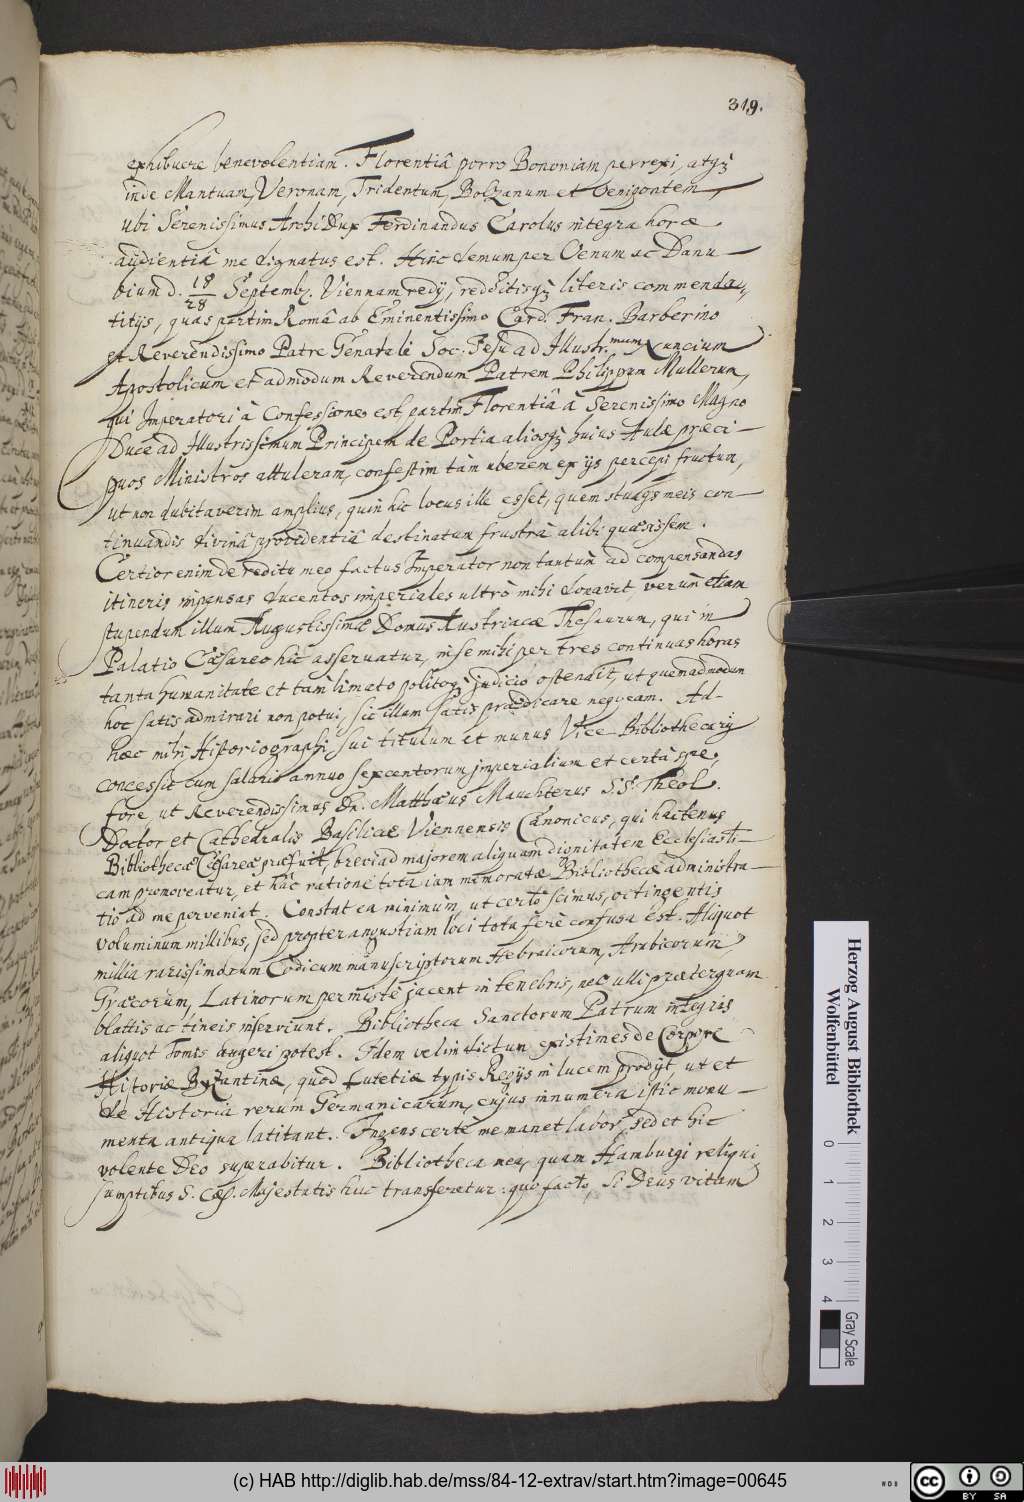 319.
exhibuere benevolentiam. Florentiâ porro Bononiam perrexi, atq́;
inde Mantuam, Veronam, Tridentum, Bolzanum et Oenipontem,
ubi Serenissimus ArchiDux Ferdinandus Carolus integra horæ
audientiâ me dignatus est. Hinc demum per Oenum ac Danu-
bium d. 18/28 Septemb. Viennam redij, redditisq́; literis commenda-
titijs, quas partim Româ ab Eminentissimo Card. Fran. Barberino
et Reverendissimo Patre Soc. Jesu ad Illustr.mum Nuncium
Apostolicum et admodum Reverendum Patrem Philippum Mullerum,
qui Imperatori à Confessione est, partim Florentiâ à Serenissimo Magno
Duce ad Illustrissimum Principem de Portia aliosq́; huius Aulæ præci-
puos Ministros attuleram, confestim tàm uberem ex ijs percepi fructum,
ut non dubitaverim amplius, quin hîc locus ille esset, quem studijs meis con-
tinuandis divinâ providentiâ destinatum frustrà alibi quæsissem.
Certior enim de reditu meo factus Imperator non tantum ad compensandas
itineris impensas ducentos imperiales ultrò mihi donavit, verùm etiam
stupendum illum Augustissimæ Domus Austriacæ Thesaurum, qui in
Palatio Cæsareo hîc asservatur, ipse mihi per tres continuas horas
tanta humanitate et tàm limato politoq́; judicio ostendit, ut quemadmodum
hoc satis admirari non potui, sic illam satis prædicare nequeam. Ad-
hæc mihi Historiographi sui titulum et munus Vice-Bibliothecarij
concessit cum salario annuo sexcentorum imperialium et certâ spe,
fore, ut Reverendissimus Dn. Matthæus Mauchterus S.S. Theol.
Doctor et Cathedralis Basilicæ Viennensis Canonicus, qui hactenus
Bibliothecæ Cæsareæ præfuit, brevi ad majorem aliquam dignitatem Ecclesiasti-
cam promoveatur, et hâc ratione tota iam memoratæ Bibliothecæ administra-
tio ad me perveniat. Constat ea minimùm, ut certò scimus, octingentis
voluminum millibus, sed propter angustiam loci tota ferè confusa est. Aliquot
millia rarissimorum Codicum manuscriptorum Hebraicorum, Arabicorum,
Græcorum, Latinorum permistè jacent in tenebris, nec ulli præterquam
blattis ac tineis inserviunt. Bibliotheca Sanctorum Patrum integris
aliquot Tomis augeri potest. Idem velim dictum existimes de Corpore
Historiæ Byzantinæ, quod Lutetiæ typis Regijs in lucem prodijt, ut et
de Historia rerum Germanicarum, cujus innumera istic monu-
menta antiqua latitant. Ingens certè me manet labor, sed et hic
volente Deo superabitur. Bibliotheca mea, quam Hamburgi reliqui,
sumptibus S. Cæs. Majestatis huc transferetur: quo facto, si Deus vitam
Herzog August Bibliothek
Wolfenbüttel
0 1 2 3 4
Gray Scale
(c) HAB http://diglib.hab.de/mss/84-12-extrav/start.htm?image=00645
WDB
cc BY SA